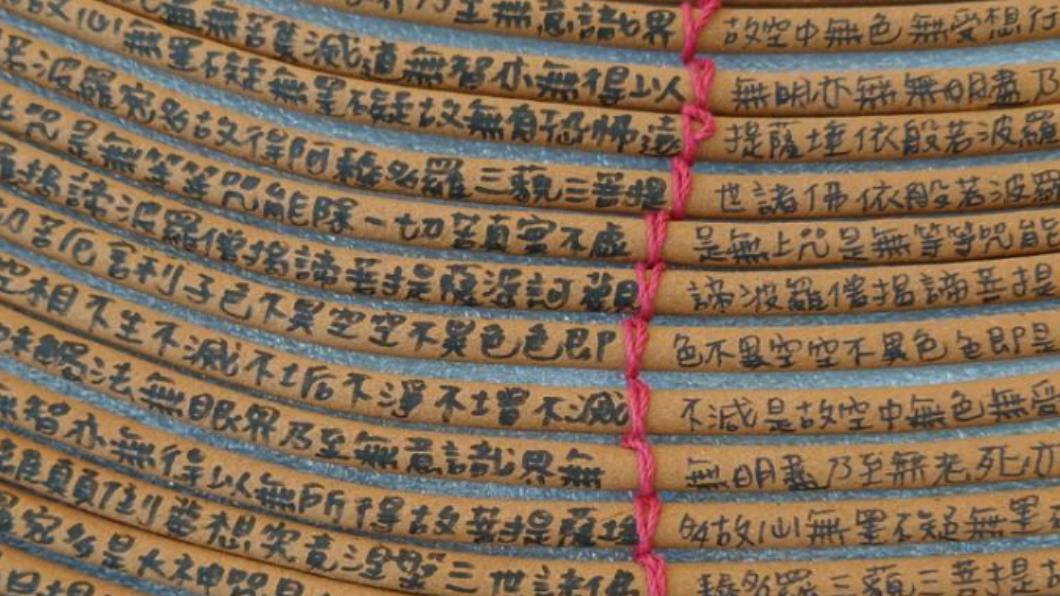 乃至無意識界 故空中無色無受想行
無苦集滅道無智亦無得以 無明亦無無明盡乃
故心無罣礙無罣礙故無有恐怖遠 提薩埵依般若波羅
若波羅蜜多故得阿耨多羅三藐三菩提 世諸佛依般若波羅
咒是無等等咒能除一切苦真實不虛 是無上咒是無等等咒能
揭諦波羅僧揭諦菩提薩婆訶觀 諦波羅僧揭諦菩提
切苦厄舍利子色不異空空不異色色即 色不異空空不異色色即是
空相不生不滅不垢不淨不增不減 不減是故空中無色無受
味觸法無眼界乃至無意識界無 無明盡乃至無老死亦
無智亦無得以無所得故菩提薩埵 多故心無罣礙無罣
離顛倒夢想究竟涅槃三世諸佛 耨多羅三藐三菩提故
蜜多是大神咒是